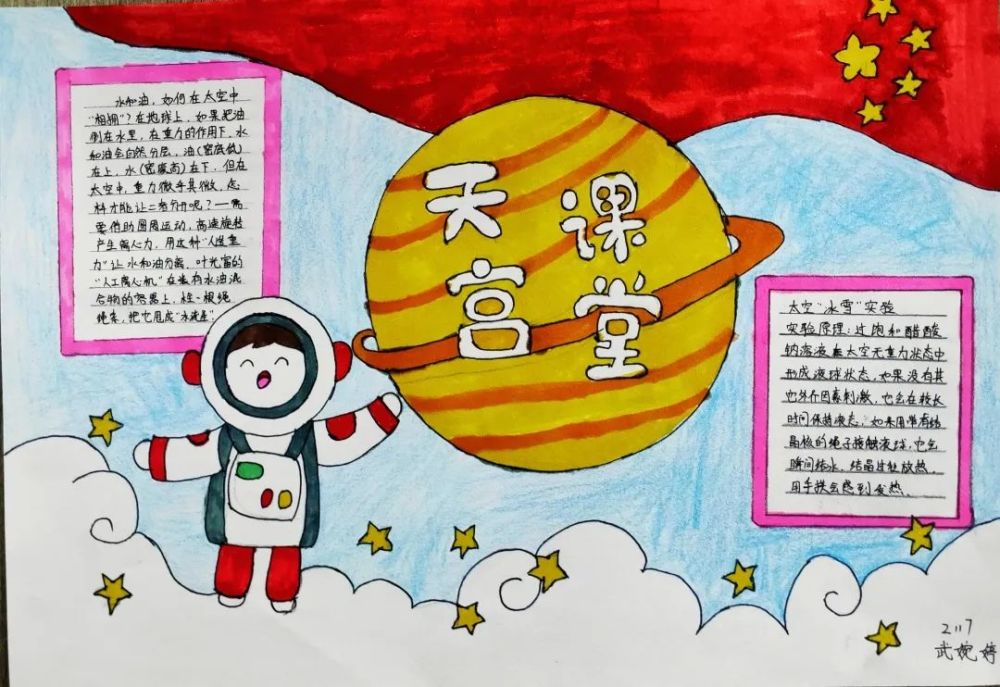 天宫
课堂
水和油，如何在太空中
"相拥"？在地球上，如果把油
倒在水里，在重力的作用下，水
和油会自然分层，油（密度低）
在上，水（密度高）在下．但在
太空中，重力微乎其微，怎
样才能让二者分开呢？——需
要借助圆周运动，高速旋转
产生离心力，用这种"人造重
力"让水和油分离．叶光富的
"人工离心机"在装有水油混
合物的容器上，栓一根绳
绳来，把它甩成"水流星"．
太空"冰雪"实验
实验原理：过饱和醋酸
钠溶液在太空无重力状态中
形成液球状态，如果没有其
它外界因素刺激，它会在较长
时间保持液态，如果用带有结
晶核的绳子接触液球，它会
瞬间结冰，结晶过程放热．
用手摸会感到发热．
2117
武婉婷